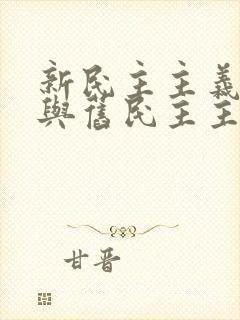 新民主主義
與舊民主主
甘晋